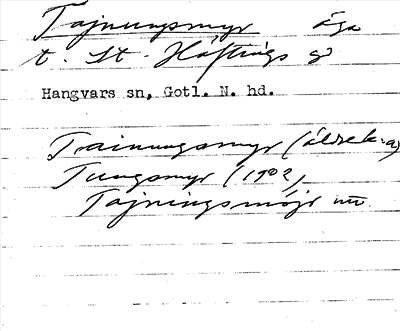 Tajnungsmyr äga
t. St. Häftings gd
Hangvars sn, Gotl. N. hd.
Trainungsmyr (äldre k:a)
Tungsmyr (1902)
Tajningsmöjr